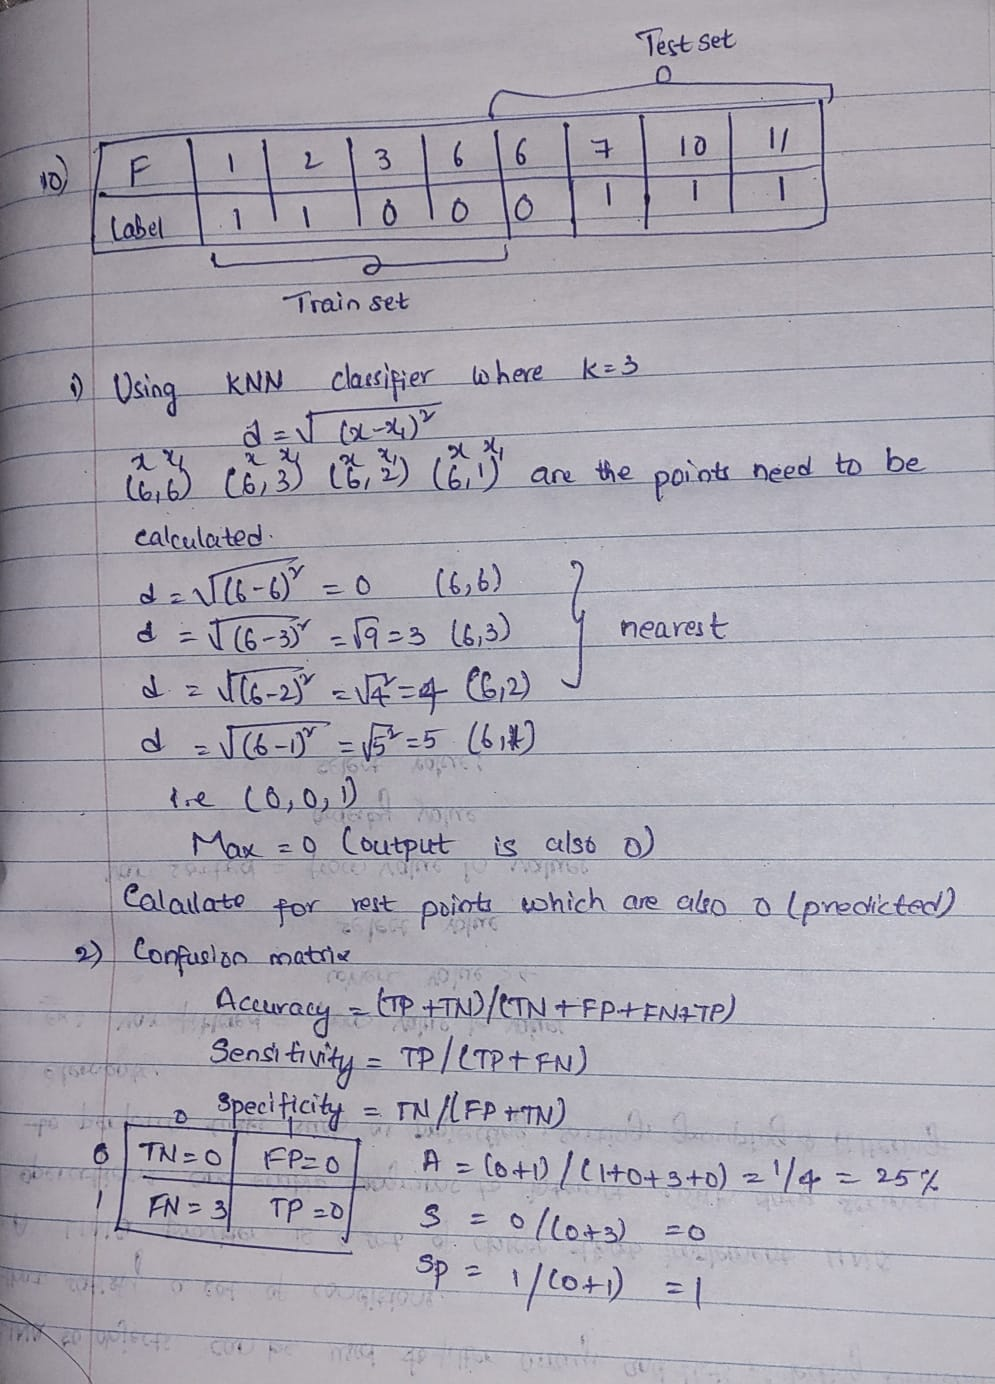 Test set
10) F 1 2 3 6 6 7 10 11
Label 1 1 0 0 0 1 1 1
Train set
1) Using KNN classifier where k=3
d = √(x-x₁)²
x x₁ x x₁ x x₁ x x₁
(6,6) (6,3) (6,2) (6,1) are the points need to be
calculated.
d = √(6-6)² = 0 (6,6)
d = √(6-3)² = √9 = 3 (6,3) nearest
d = √(6-2)² = √4² = 4 (6,2)
d = √(6-1)² = √5² = 5 (6,1)
i.e (0,0,1)
Max = 0 (output is also 0)
Calallate for rest points which are also 0 (predicted)
2) Confusion matrix
Accuracy = (TP+TN)/(TN+FP+FN+TP)
Sensitivity = TP/(TP+FN)
Specificity = TN/(FP+TN)
0
0 TN=0 FP=0 A = (0+1)/(1+0+3+0) = 1/4 = 25%
1 FN=3 TP=0 S = 0/(0+3) = 0
Sp = 1/(0+1) = 1